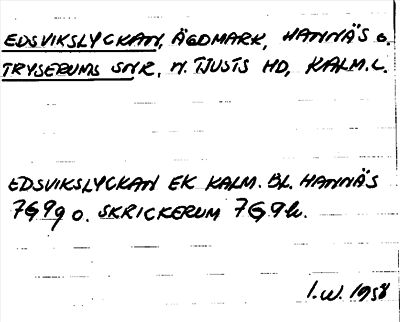 EDSVIKSLYCKAN, ÄGOMARK, HANNÄS o.
TRYSERUMS SNR, N. TJUSTS HD, KALM. L.
EDSVIKSLYCKAN EK KALM. BL. HANNÄS
7G9g o. SKRICKERUM 7G9h.
I.W. 1958